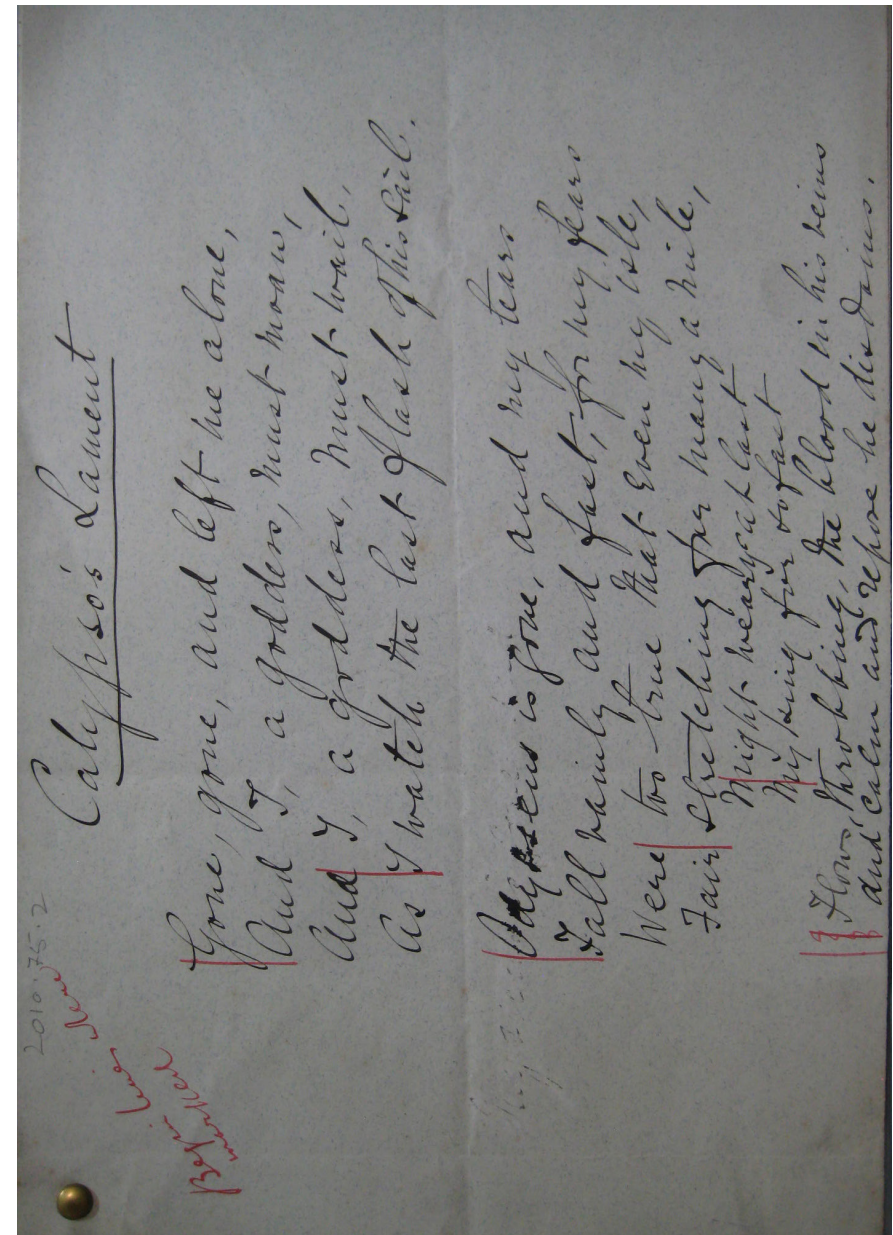 2010.75.2
Begin lines here
marked
Calypso's Lament
Gone, gone, and left me alone,
And I, a goddess, must moan,
And I, a goddess, must wail,
As I watch the last flash of his sail.
Odysseus is gone, and my tears
Fall vainly and fast, for my fears
Were too true that even my isle,
Fair stretching for many a mile,
Might weary at last
My king for so fast
Flows, throbbing, the blood in his veins
And calm and repose he disdains.